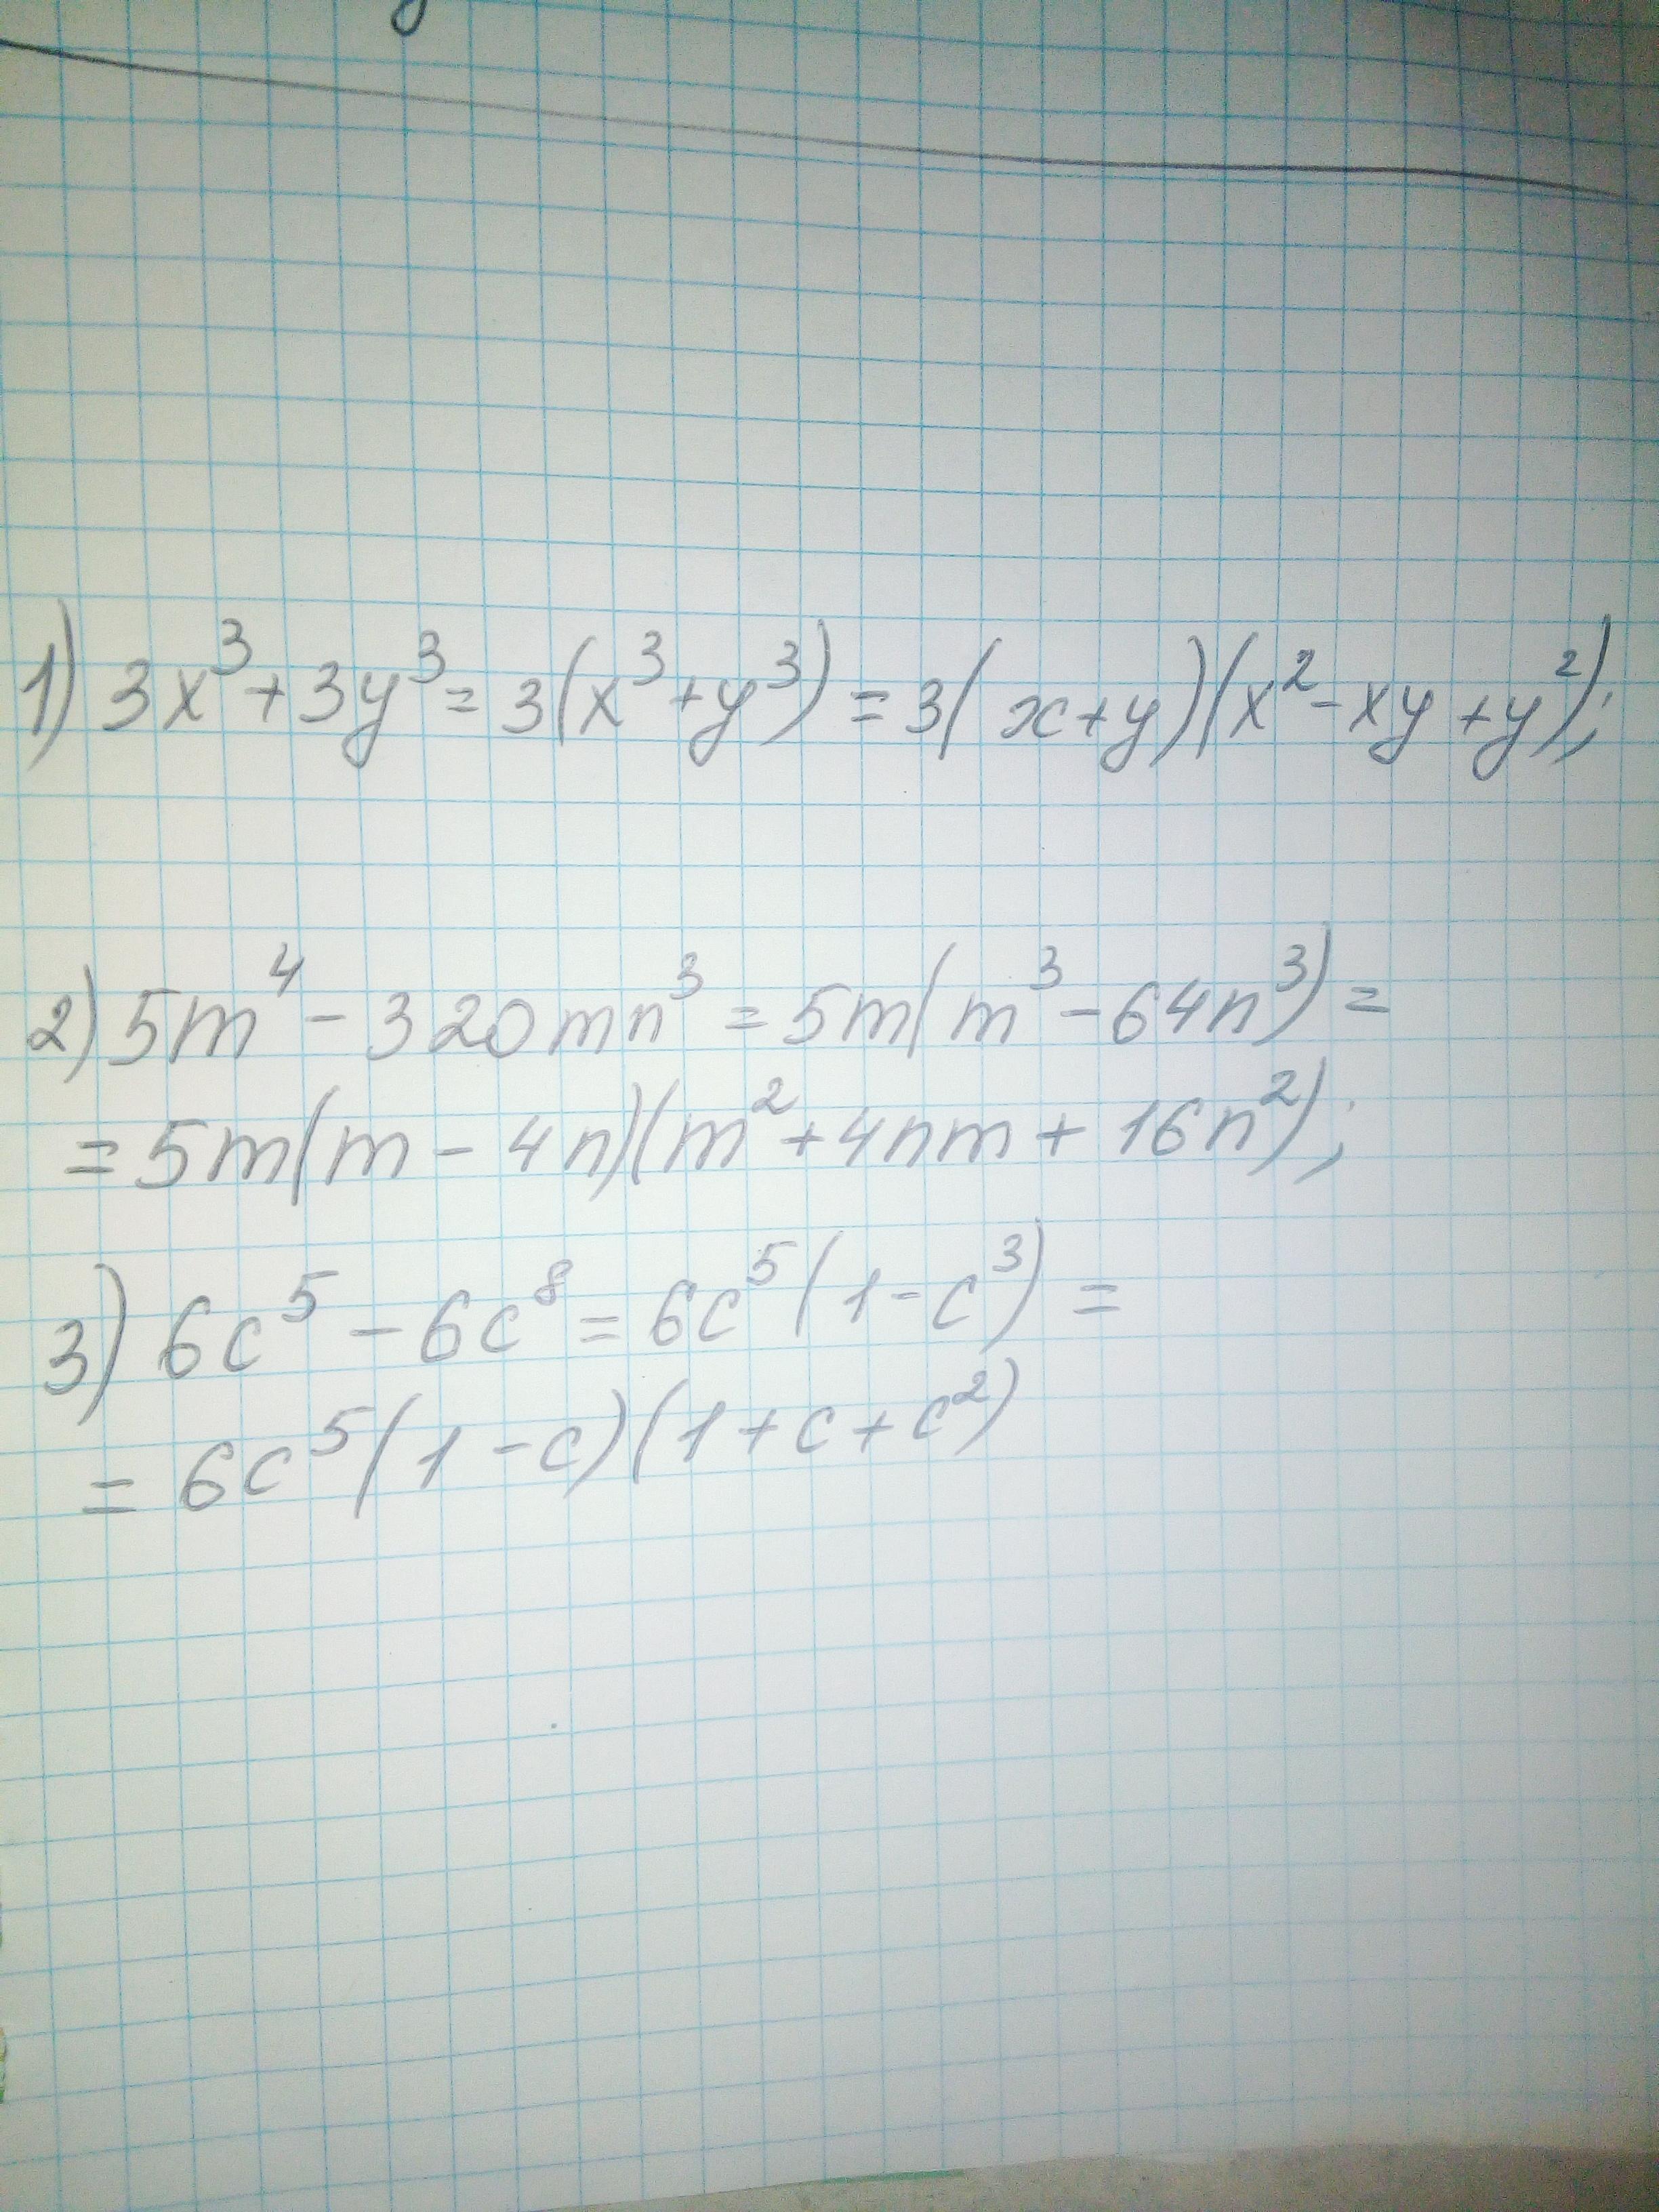 1) 3x³+3y³=3(x³+y³)=3(x+y)(x²-xy+y²);
2) 5m⁴-320mn³=5m(m³-64n³)=
=5m(m-4n)(m²+4nm+16n²);
3) 6c⁵-6c⁸=6c⁵(1-c³)=
=6c⁵(1-c)(1+c+c²)